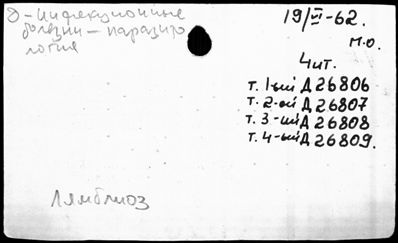 д - инфекционные
болезни - паразито
логия
19/VI-62.
м.о.
Чит.
т. 1-ый Д 26806
т. 2-ой Д 26807
т. 3-ий Д 26808
т. 4-ый Д 26809.
Лямблиоз